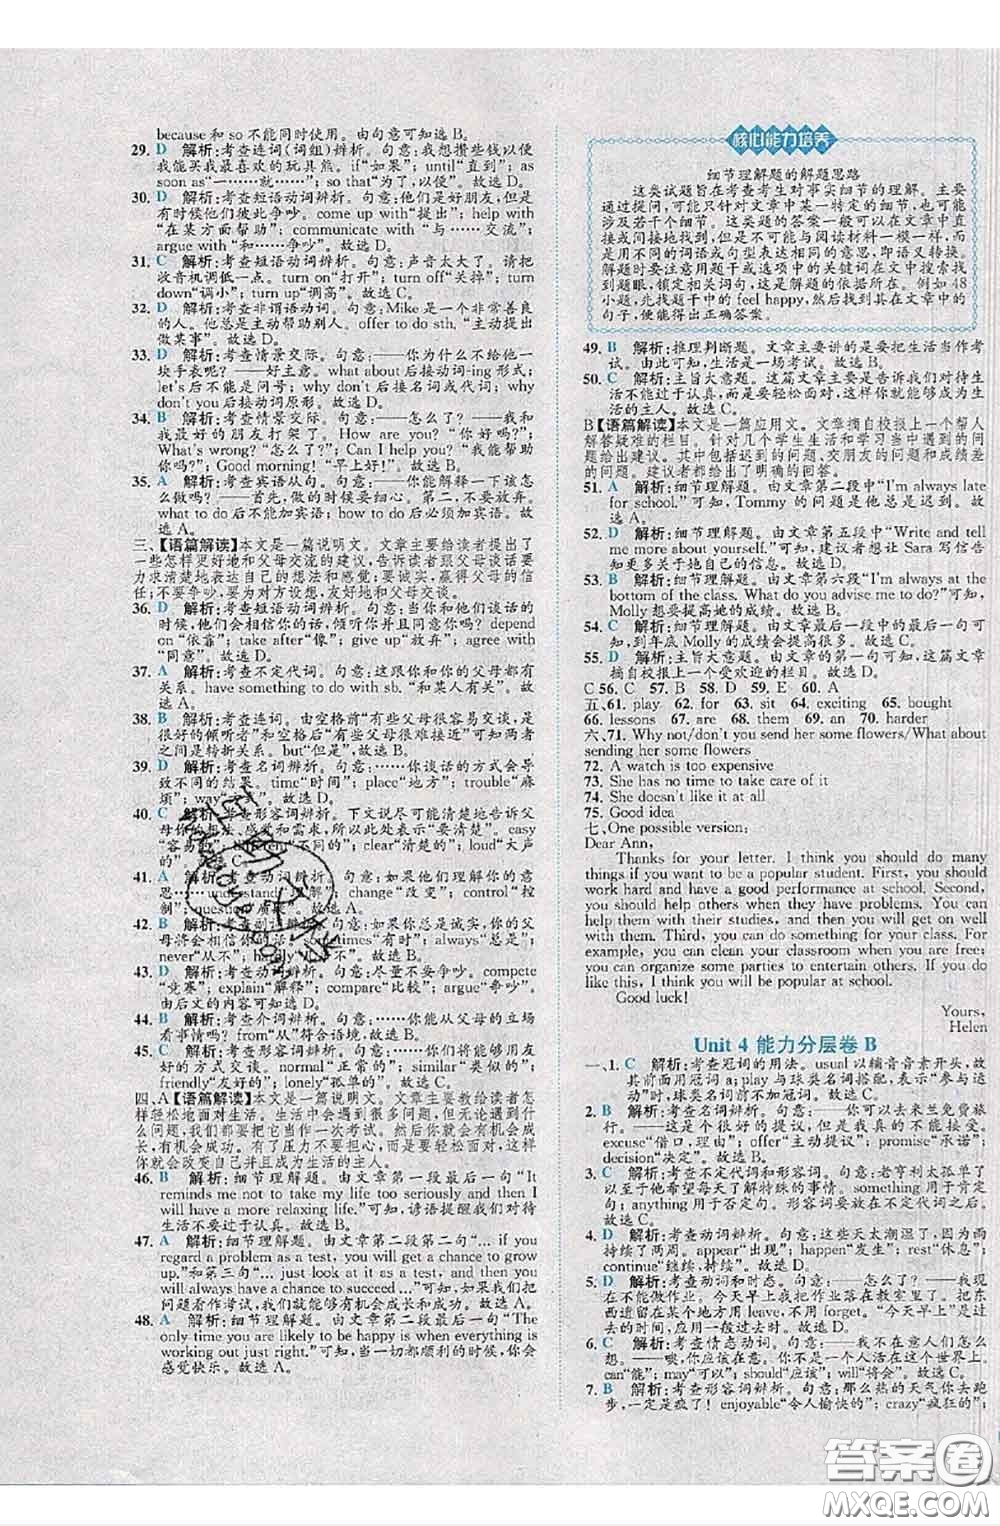 because 和 so 不能同时使用。由句意可知选 B。
29. D 解析:考查连词(词组)辨析。句意:我想攒些钱以便
我能买我最喜欢的玩具熊。if“如果”; until“直到”; as
soon as“一……就……”; so that“为了”。故选 D。
30. D 解析:考查短语动词辨析。句意:他们是好朋友,但是
有时候他们彼此争吵。come up with“提出”; help with
“在某方面帮助”; communicate with“与……交流”;
argue with“和……争吵”。故选 D。
31. C 解析:考查短语动词辨析。句意:声音太大了。请把
收音机调低一点。turn on“打开”; turn off“关掉”; turn
down“调小”; turn up“调高”。故选 C。
32. D 解析:考查非谓语动词。句意:Mike 是一个非常善良
的人。他总是主动帮助别人。offer to do sth. “主动提出
做某事”。故选 D。
33. D 解析:考查情景交际。句意:——你为什么不给他一
块手表呢?——好主意。what about 后接动词-ing 形式;
let's 后不能是问号; why don't 后接名词或代词; why
don't you 后接动词原形。故选 D。
34. B 解析:考查情景交际。句意:——怎么了?——我和
我最好的朋友打架了。How are you? “你好吗?”;
What's wrong? “怎么了?”; Can I help you? “我能帮助
你吗?”; Good morning! “早上好!”。故选 B。
35. A 解析:考查宾语从句。句意:——你能解释一下该怎
么做吗?——首先,做的时候要细心。第二,不要放弃。
what to do 后不能加宾语; how to do 后必须加宾语。故
选 A。
三、【语篇解读】本文是一篇说明文。文章主要给读者提出了
一些怎样更好地和父母交流的建议,告诉读者跟父母谈话要
力求清楚地表达自己的想法和感觉;要诚实,赢得父母的信
任;不要争吵,要为对方设想,友好地和父母交谈。
36. D 解析:考查短语动词辨析。句意:当你和他们谈话的
时候,他们会相信你的话,倾听你并且同意你。depend
on “依靠”; take after“像”; give up“放弃”; agree with
“同意”。故选 D。
37. A 解析:考查不定代词。句意:这跟你和你的父母都有
关系。have something to do with sb. “和某人有关”。故
选 A。
38. B 解析:考查连词。由空格前“有些父母很容易交谈,是
很好的倾听者”和空格后“有些父母很难接近”可知两者
之间是转折关系。but“但是”。故选 B。
39. D 解析:考查名词辨析。句意:……你谈话的方式会导
致不同的结果。time“时间”; place“地方”; trouble“麻
烦”; way“方式”。故选 D。
40. C 解析:考查形容词辨析。下文说尽可能清楚地告诉父
母你的想法、感觉和需求,所以此处表示“要清楚”。easy
“容易的”; different“不同的”; clear“清楚的”; loud“大声
的”。故选 C。
41. A 解析:考查动词辨析。句意:如果他们理解你的意
思……understand“理解”; change“改变”; control“控
制”; question“质疑”。故选 A。
42. B 解析:考查副词辨析。句意:如果你总是诚实,你的父
母将会相信你的话! sometimes“有时”; always“总是”;
never“从不”; hardly“几乎不”。故选 B。
43. D 解析:考查动词辨析。句意:尽量不要争吵。compete
“竞赛”; explain“解释”; compare“比较”; argue“争吵”。
由后文的内容可知选 D。
44. B 解析:考查介词辨析。句意:……你能从父母的立场
看事情吗? from“从”符合语境。故选 B。
45. C 解析:考查形容词辨析。句意:……他们也可能变得
友好。normal“正常的”; similar“类似的”;
friendly“友好的”; lonely“孤单的”。故选 C。
四、A【语篇解读】本文是一篇说明文。文章主要教给读者怎
样轻松地面对生活。生活中会出现很多问题,但无论出现什
么问题,我们都要把它当作一次考试。然后你就会有机会成
长,有机会成功。有了压力不要担心,而是要轻松面对,这样
你就会改变自己并且成为生活的主人。
46. B 解析:细节理解题。由文章第一段最后一句“It
reminds me not to take my life too seriously and then I
will have a more relaxing life.”可知,谚语提醒我们对待
生活不要过于认真。故选 B。
47. A 解析:细节理解题。由文章第二段第二句“… if you
regard a problem as a test, you will get a chance to grow
up.”和第三句“… just look at it as a test, and then you
will always have a chance to succeed …”可知,如果我们把
问题看作考试,我们就能够有机会成长和成功。故选 A。
48. A 解析:细节理解题。由文章第二段最后一句“The
only time you are likely to be happy is when everything is
working out just right.”可知,当一切都顺利的时候,你会
感觉快乐。故选 A。
核心能力培养
细节理解题的解题思路
这类试题旨在考查考生对事实细节的理解。主要
通过提问,可能只针对文章中某一特定的细节,也可能
涉及若干个细节。这类题的答案一般可以在文章中直
接或间接地找到,但是不可能与阅读材料一模一样,而
是用不同的词语或句型表达相同的意思,即语义转换。
解题时要注意用题干或选项中的关键词在文中搜索
找到题眼,锁定相关词句,这是解题的依据所在。例如 48
小题,先找题干中的 feel happy,然后找到其在文章中的
句子,便能得出正确答案。
49. B 解析:推理判断题。文章主要讲的是要把生活当作考
试。由此可知,生活是一场考试。故选 B。
50. C 解析:主旨大意题。这篇文章主要是告诉我们对待生
活不能过于认真,而是要轻松面对,这样你就能够成为生
活的主人。故选 C。
B【语篇解读】本文是一篇应用文。文章摘自校报上一个帮人
解答疑难的栏目。针对几个学生生活和学习当中遇到的问题
给出建议。其中包括迟到的问题、交朋友的问题和提高成绩
的问题。建议者给出了明确的回答。
51. A 解析:细节理解题。由文章第二段中“I'm always late
for school.”可知,Tommy 的问题是他总是迟到。故
选 A。
52. D 解析:细节理解题。由文章第五段中“Write and tell
me more about yourself.”可知,建议者想让 Sara 写信告
知更多关于她的信息。故选 D。
53. B 解析:细节理解题。由文章第六段“I'm always at the
bottom of the class. What do you advise me to do?”可知,
Molly 想要提高她的成绩。故选 B。
54. C 解析:细节理解题。由文章最后一段中的最后一句可
知,到年底 Molly 的成绩会提高很多。故选 C。
55. D 解析:主旨大意题。由文章的第一句可知,这篇文章
摘自校报上一个受欢迎的栏目。故选 D。
C 56. C 57. B 58. D 59. E 60. A
五、61. play 62. for 63. sit 64. exciting 65. bought
66. lessons 67. are 68. them 69. an 70. harder
六、71. Why not/don't you send her some flowers/What about
sending her some flowers
72. A watch is too expensive
73. She has no time to take care of it
74. She doesn't like it at all
75. Good idea
七、One possible version:
Dear Ann,
Thanks for your letter. I think you should do many
things if you want to be a popular student. First, you should
work hard and have a good performance at school. Second,
you should help others when they have problems. You can
help them with their studies, and then you will get on well
with them. Third, you can do something for your class. For
example, you can clean your classroom when you are free;
you can organize some parties to entertain others. If you do
like this, I think you will be popular at school.
Good luck!
Yours,
Helen
Unit 4 能力分层卷 B
一、1. C 解析:考查冠词的用法。usual 以辅音音素开头,故
其前面用冠词 a; play 与球类名词搭配,表示“参与运
动”时,球类名词前不加冠词。故选 C。
2. B 解析:考查名词辨析。句意:你们可以去米兰免费旅
行。——这是个很好的提议,但是我真的不能接受。
excuse“借口,理由”; offer“主动提议”; promise“承诺”;
decision“决定”。故选 B。
3. C 解析:考查不定代词和形容词。句意:老亨利太孤单了
以至于他希望每天了解特殊的事情。something 用于肯定
句; anything 用于否定句。形容词要放在不定代词之后。
故选 C。
4. D 解析:考查动词辨析。句意:这些天太潮湿了,因为雨
持续了两周。appear“出现”; happen“发生”; rest“休息”;
continue“继续,持续”。故选 D。
5. D 解析:考查动词和时态。句意:——怎么了?——我现在
不能做作业。今天早上我把作业落在教室里了。把东
西遗留在某个地方用 leave,不用 forget。“今天早上”是过
去的时间,故用一般过去时。故选 D。
6. C 解析:考查情态动词。句意:——我不在意人们怎么
想。——噢,你应该在意。有些人会在这个世界上。
can“能”; may“可以”; should“应该”; will“将会”。故选 C。
7. B 解析:考查形容词辨析。句意:那么热的天气你去跑
步,一定是疯了! enjoyable“令人愉快的”; crazy“疯狂的”;
答案圈
MXQE.COM